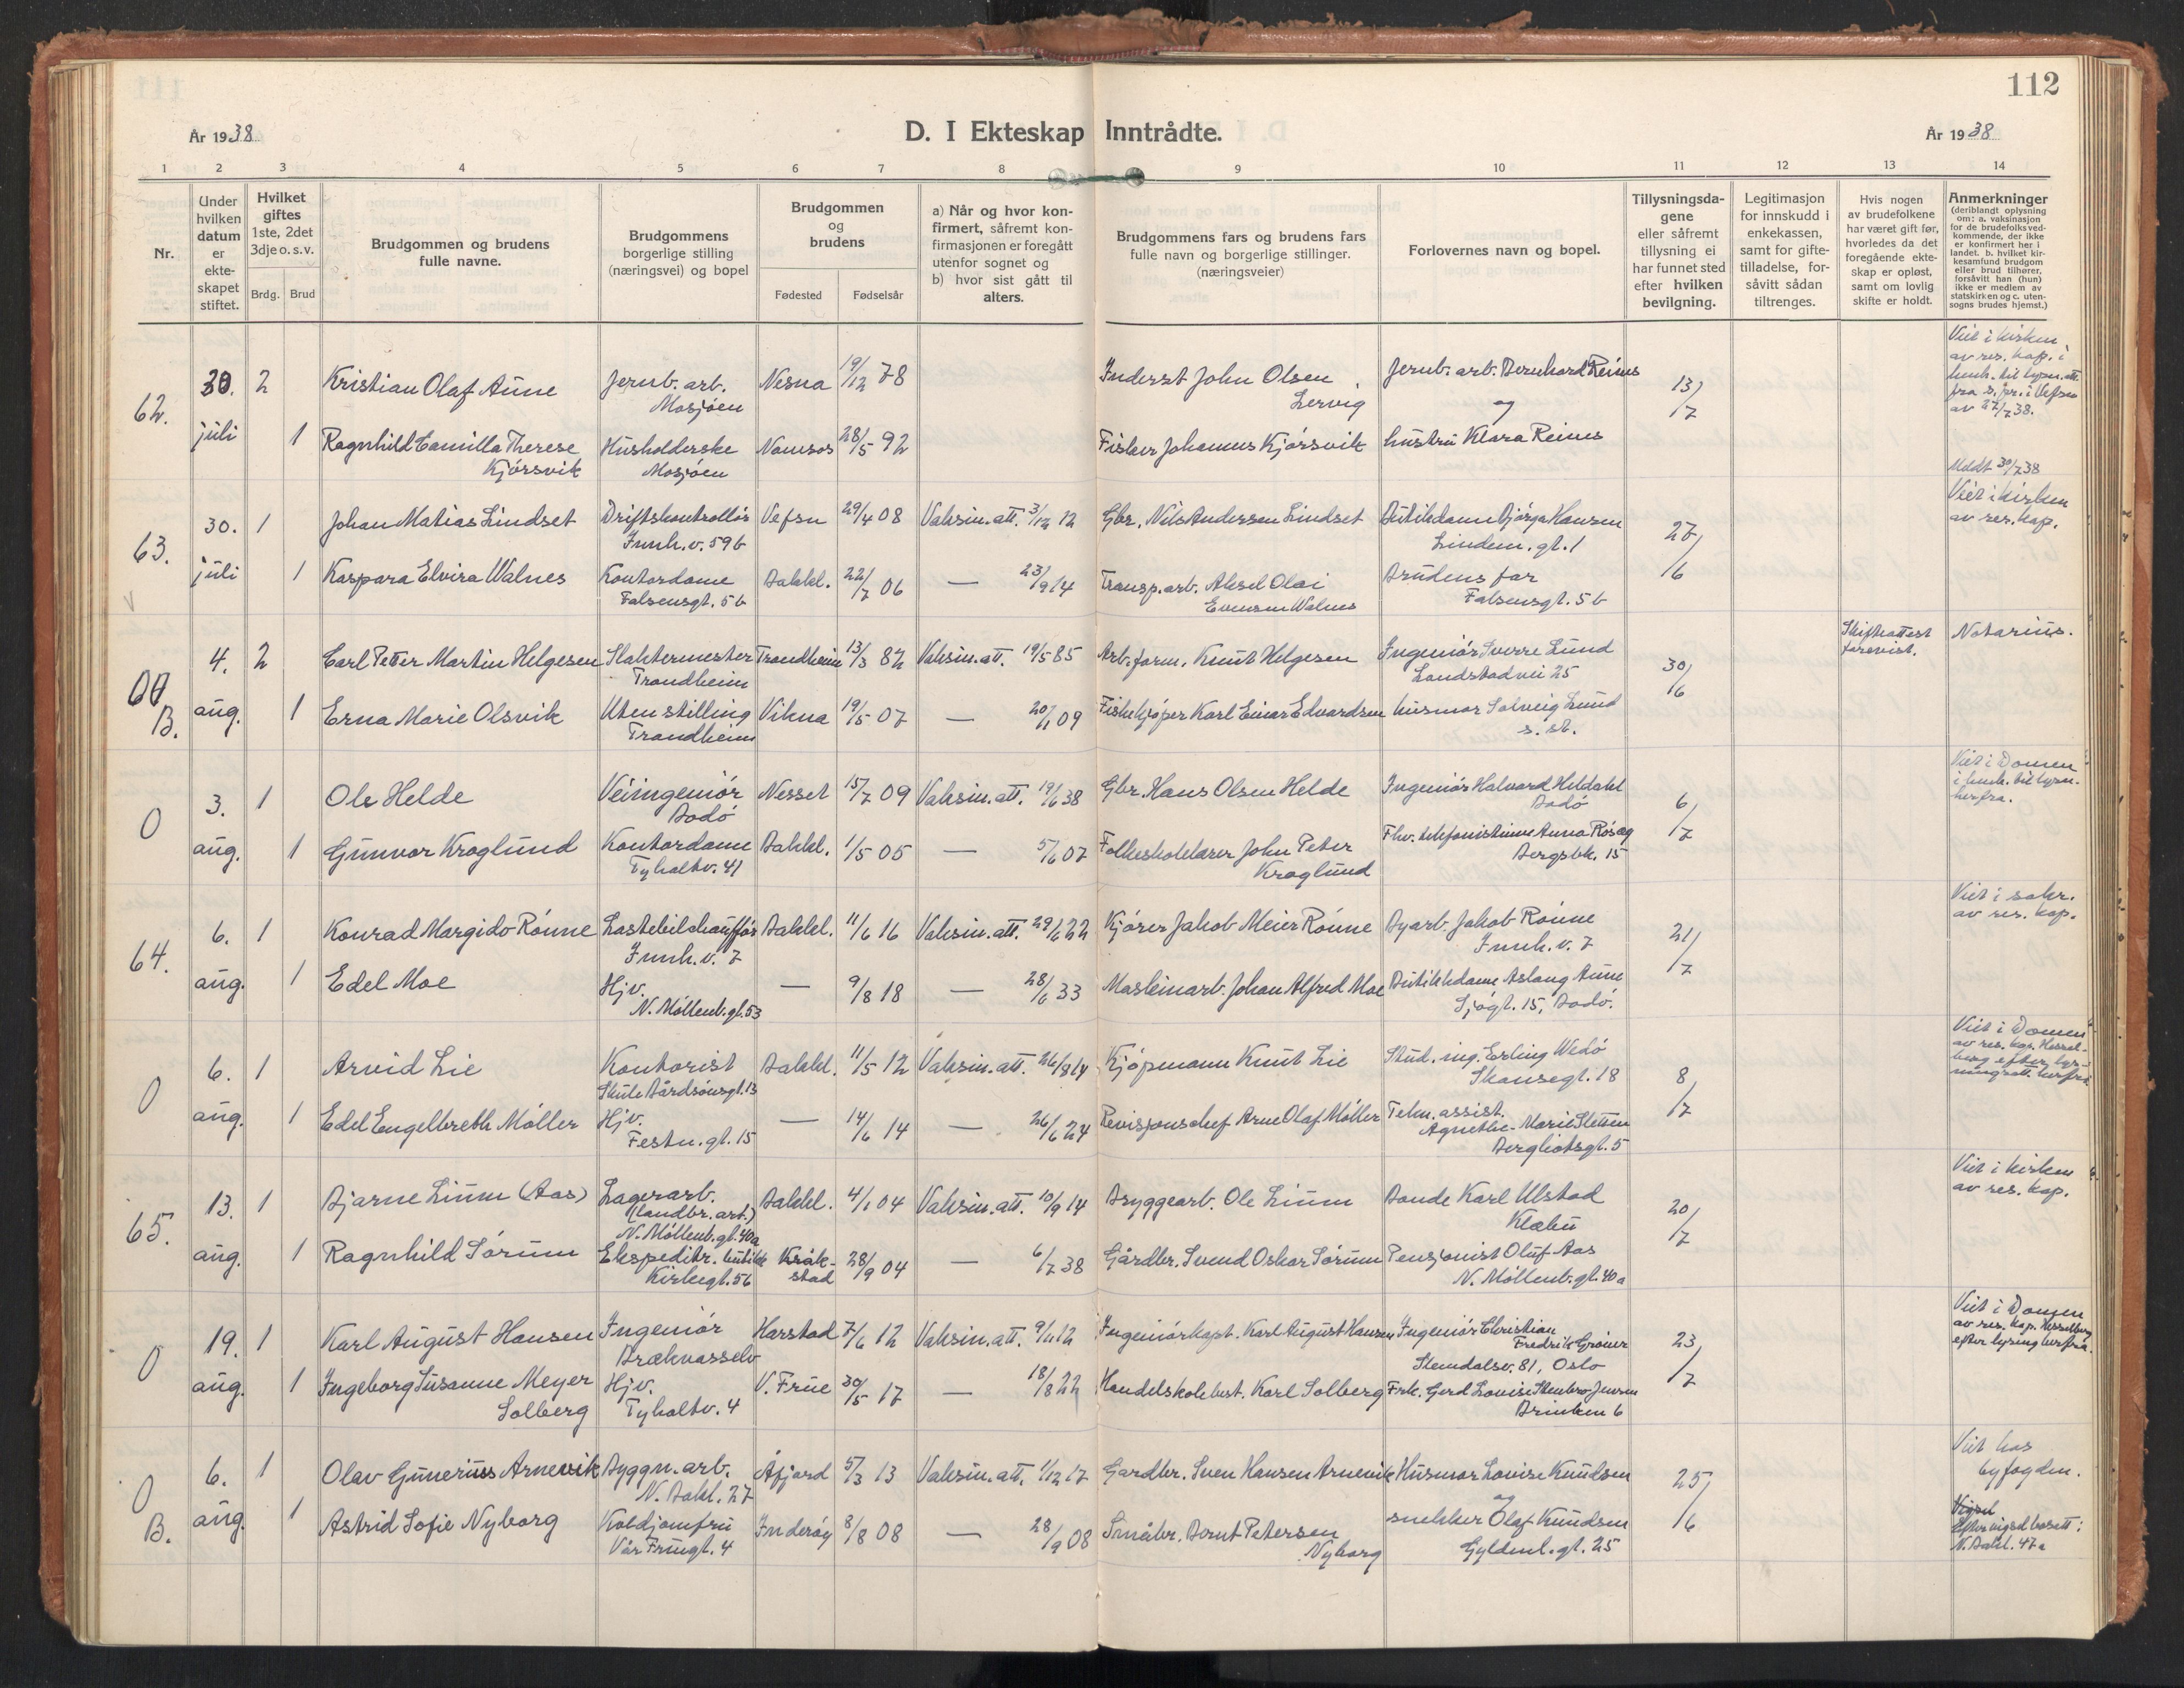 112
År 1938
D. I Ekteskap Inntrådte.
År 1938
1 2 3 4 5 6 7 8 9 10 11 12 13 14
Nr.
Under hvilken datum er ekte-skapet stiftet.
Hvilket giftes 1ste, 2det 3dje o. s. v.
Brdg. Brud
Brudgommen og brudens fulle navne.
Brudgommens borgerlige stilling (næringsvei) og bopel
Brudgommen og brudens
Fødested Fødselsår
a) Når og hvor kon-
firmert, såfremt kon-
firmasjonen er foregått
utenfor sognet og
b) hvor sist gått til
alters.
Brudgommens fars og brudens fars
fulle navn og borgerlige stillinger.
(næringsveier)
Forlovernes navn og bopel.
Tillysningsda-
gene
eller såfremt
tillysning ei
har funnet sted
efter hvilken
bevilgning.
Legitimasjon
for innskudd i
enkekassen,
samt for gifte-
tilladelse, for-
såvitt sådan
tiltrenges.
Hvis nogen
av brudefolkene
har været gift før,
hvorledes da det
foregående ekte-
skap er opløst,
samt om lovlig
skifte er holdt.
Anmerkninger
(deriblandt oplysning
om: a. vaksinasjon
for de brudefolks ved-
kommende, der ikke
er konfirmert her i
landet. b. hvilket kir-
kesamfund brudgom
eller brud tilhører,
forsåvitt han (hun)
ikke er medlem av
statskirken og c. uten-
sogns brudes hjemst.)
62. 30. juli 2 Kristian Olaf Aune Jernb. arb. Mosjøen Nesna 19/12 78 Inderst John Olsen Lervig Jernb. arb. Bernhard Reinus og 13/7
Viet i kirken av res. kap. i henh. til lysn. att. fra s. pr. i Vefsn av 27/7 38.
1 Ragnhild Camilla Therese Kjørsvik Husholderske Mosjøen Namsos 28/5 92 Fisker Johannes Kjørsvik hustru Klara Reinus
Meldt 30/7 38
63. 30. juli 1 Johan Matias Lindset Driftskontrollør Innh. v. 59b Vefsn 29/4 08 Vaksin. att. 3/12 12 Gbr. Nils Andersen Lindset Butikkdame Bjørga Hansen Lindem. gt. 1 27/6 Viet i kirken av res. kap.
1 Kaspara Elvira Walnes Kontordame Falsensgt. 5b Bakkl. 22/7 06 — 23/9 14 Transp. arb. Aksel Olai Evensen Walnes Brudens far Falsensgt. 5b
B. 4. aug. 2 Carl Petter Martin Helgesen Slaktermester Trondheim Trondheim 13/3 82 Vaksin. att. 19/5 85 Arb. form. Knut Helgesen Ingeniør Sverre Lund Landstadvei 25 30/6 Skifteattest forevist. Notarius.
1 Erna Marie Olsvik Uten stilling Trondheim Vikna 19/5 07 — 20/11 09 Fiskekjøper Karl Einar Edvardsen husmor Solveig Lund s. st.
0 3. aug. 1 Ole Helde Veiingeniør Bodø Nesset 15/7 09 Vaksin. att. 19/6 38 Gbr. Hans Olsen Helde Ingeniør Halvard Heldahl Bodø 6/7 Viet i Domen i henh. til lysn. herfra.
1 Gunvor Kroglund Kontordame Tyholtv. 41 Bakkl. 1/5 05 — 5/6 07 Folkeskolelærer John Peter Kroglund Fhv. telefonistinne Anna Røsæg Bergsbk. 15
64. 6. aug. 1 Konrad Margido Rønne Lastebilchauffør Innh. v. 7 Bakkl. 11/6 16 Vaksin. att. 29/6 22 Kjører Jakob Meier Rønne Byarb. Jakob Rønne Innh. v. 7 21/7 Viet i sakr. av res. kap.
1 Edel Moe Hjv. N. Møllenb. gt. 53 — 9/8 18 — 28/6 33 Maskinarb. Johan Alfred Moe Butikkdame Aslaug Aune Sjøgt. 15, Bodø.
0 6. aug. 1 Arvid Lie Kontorist Skule Bårdsønsgt. 13 Bakkl. 11/5 12 Vaksin. att. 26/8 14 Kjøpmann Knut Lie Stud. ing. Erling Wedø Skansegt. 18 8/7 Viet i Domen av res. kap. Hesselberg efter lysningsatt. herfra
1 Edel Engelbreth Møller Hjv. Festn. gt. 15 — 14/6 14 — 26/6 24 Revisjonschef Arne Olaf Møller Tekn. assist. Agnethe-Marie Sletten Bergliotsgt. 5
65. 13. aug. 1 Bjarne Linum (Aas) Lagerarb. (landbr. arb.) N. Møllenb. gt. 40a Bakkl. 4/1 04 Vaksin. att. 10/9 14 Bryggearb. Ole Linum Bonde Karl Ulstad Klæbu 20/7 Viet i kirken av res. kap.
1 Ragnhild Sørum Ekspeditr. butikk Kirkegt. 56 Kråkstad 28/9 04 — 6/7 38 Gårdbr. Svend Oskar Sørum Pensjonist Oluf Aas N. Møllenb. gt. 40a
0 19. aug. 1 Karl August Hansen Ingeniør Brækvasselv Harstad 7/6 12 Vaksin. att. 9/11 12 Ingeniørkapt. Karl August Hansen Ingeniør Christian Fredrik Grøner Slemdalsv. 81, Oslo 23/7 Viet i Domen av res. kap. Hesselberg efter lysing herfra.
1 Ingeborg Susanne Meyer Solberg Hjv. Tyholtv. 4 V. Frue 30/5 17 — 18/8 22 Handelskolebest. Karl Solberg Frk. Gerd Lovise Stenbro-Jensen Brinken 6
0 B. 6. aug. 1 Olav Gunerius Arnevik Byggn. arb. N. Bakl. 27 Åfjord 5/3 13 Vaksin. att. 1/12 17 Gardbr. Sven Hansen Arnevik Husmor Lovise Knudsen og 25/6 Viet hos byfogden.
1 Astrid Sofie Nyborg Koldjomfru Vår Fruegt. 4 Inderøy 8/8 08 — 28/9 08 Småbr. Bernt Petersen Nyborg snekker Olaf Knudsen Gyldenl. gt. 25
Efter vigsel bosatt: N. Bakl. 47a